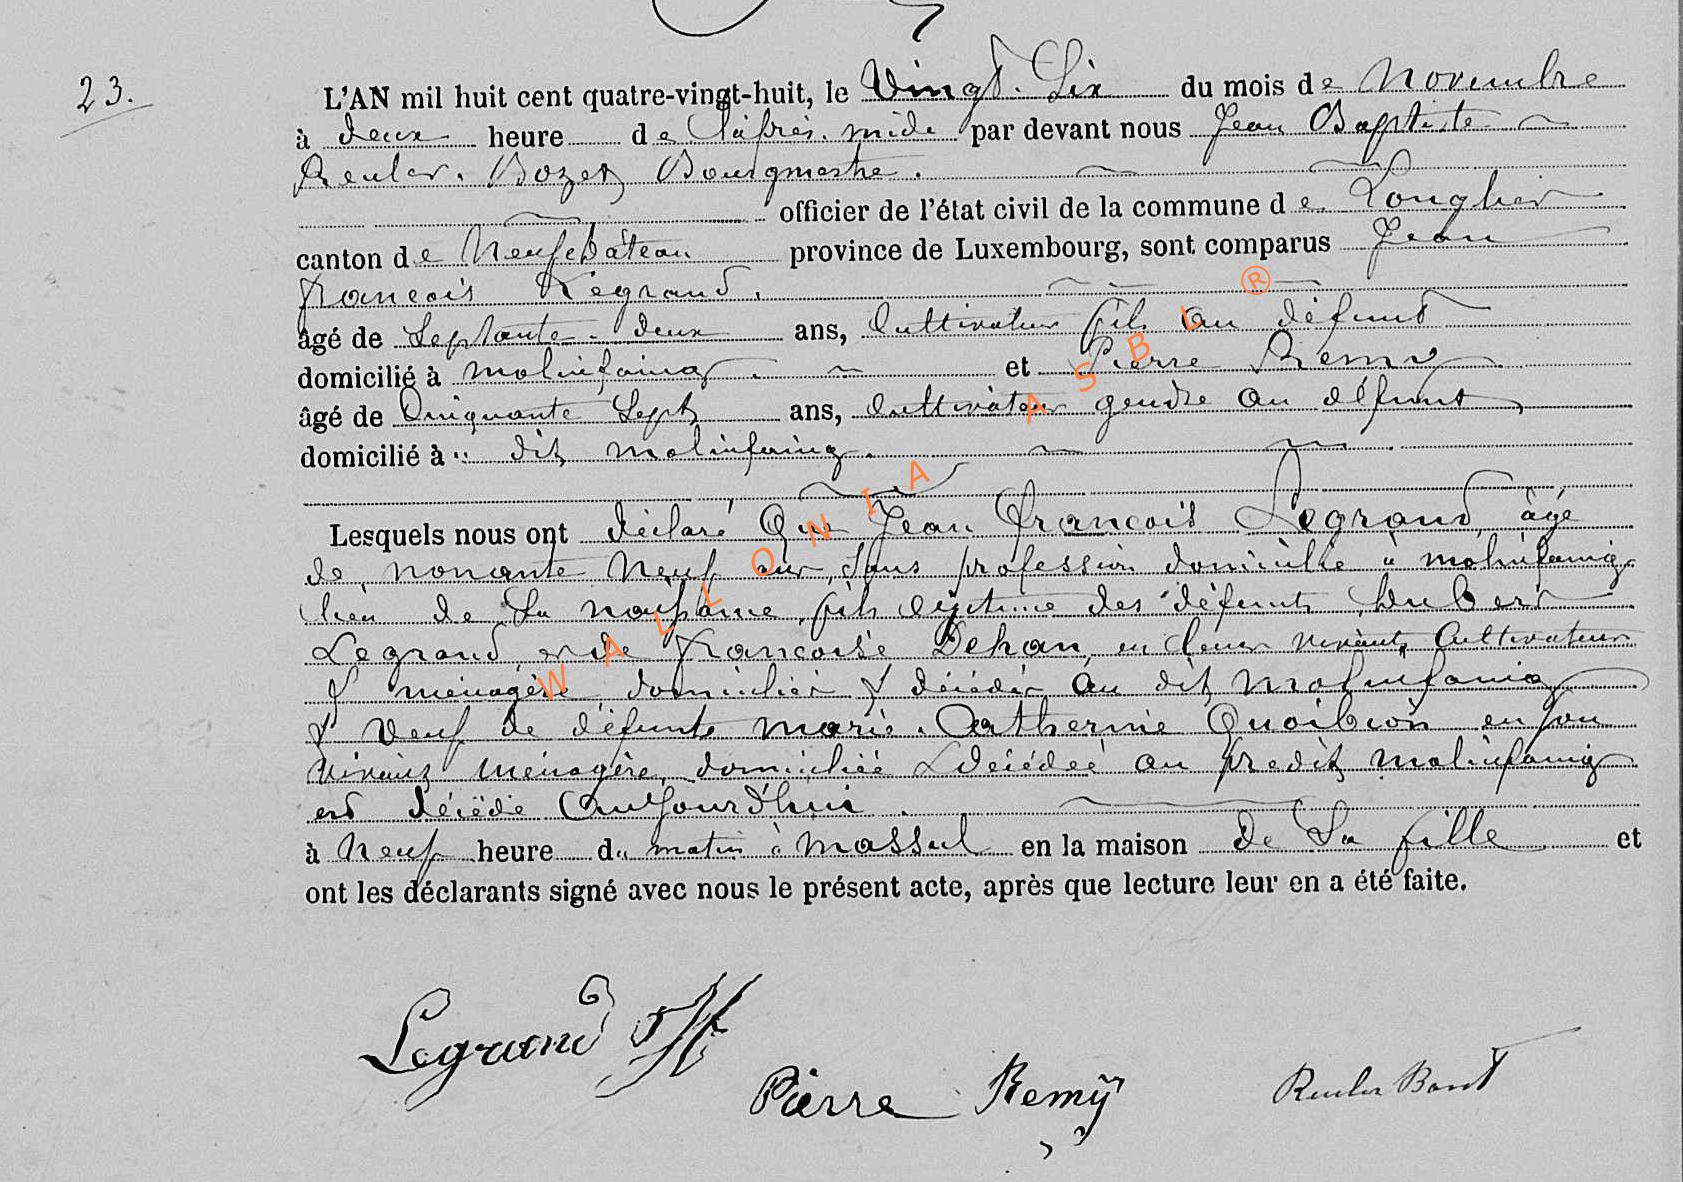 23.
L'AN mil huit cent quatre-vingt-huit, le Vingt-Six du mois de Novembre
à deux heure de l'après-midi par devant nous Jean Baptiste
Reuler-Bozet Bourgmestre.
officier de l'état civil de la commune de Longlier
canton de Neufchâteau province de Luxembourg, sont comparus Jean
François Legrand,
âgé de Septante-deux ans, Cultivateur fils au défunt
domicilié à molinfaing et Pierre Remy
âgé de Cinquante Sept ans, Cultivateur gendre au défunt,
domicilié à dit molinfaing.
Lesquels nous ont déclaré Que Jean François Legrand, âgé
de nonante Neuf ans, sans profession domicilié à molinfaing
lieu de sa naissance, fils légitime des défunts Hubert
Legrand, et de Françoise Dehan, en leur vivant, Cultivateur
& ménagère domiciliés & décédés au dit Molinfaing
& Veuf de défunte Marie-Catherine Quoibion en son
vivant ménagère, domiciliée & décédée au predit molinfaing
est décédé Aujourd'hui.
à Neuf heure du matin à Massul en la maison de Sa fille et
ont les déclarants signé avec nous le présent acte, après que lecture leur en a été faite.
Legrand
Pierre Remÿ
WALLONIA ASBL ®